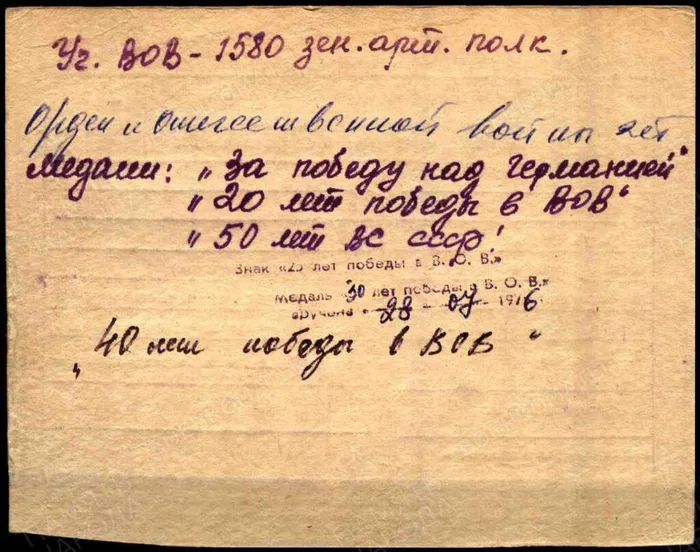 Уч. ВОВ - 1580 зен. арт. полк.
Орден Отечественной войны 2ст
Медали: „За победу над Германией"
„20 лет победы в ВОВ"
„50 лет ВС СССР!
Знак «25 лет победы в В. О. В.»
Медаль «30 лет победы в В. О. В.»
вручена «28 - 07 - 1976
„40 лет победы в ВОВ"